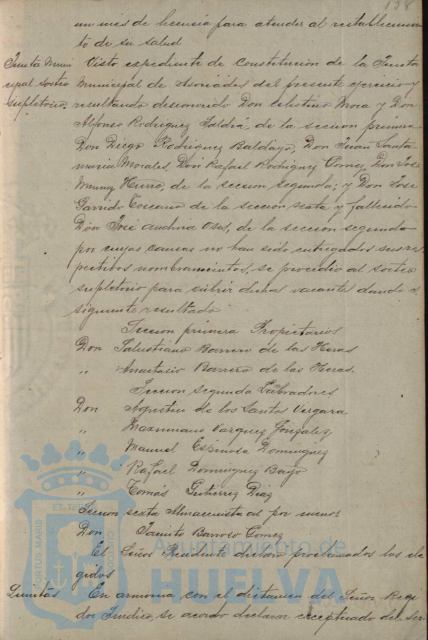 138
un mes de licencia para atender al restablecimien
to de su salud
Junta Muni
cipal sorteo
supletorio.
Visto expediente de Constitución de la Junta
Municipal de Asociados del presente ejercicio y
resultando desconocido Don Celestino Mora y Don
Alfonso Rodriguez de la sección primera
Don Diego Rodriguez Baldayo, Don Juan Santa
maria Morales, Don Rafael Rodriguez Gomez, Don José
de la sección segunda; y Don José
Garrido de la sección sexta y fallecido
Don José de la sección segunda
por cuyas causas no han sido entregados sus res
pectivos nombramientos, se procedió al sorteo
supletorio para subrir dichas vacantes dando el
siguiente resultado
Sección primera Propietarios
Don Salustiano Barrero de las Heras
" Anastasio Barrero de las Heras.
Seccion segunda Labradores
Don Agustin de los Santos Vergara
" Maximiano Vazquez Gonzalez
" Manuel Espinosa Dominguez
" Rafael Dominguez Bayo
" Tomás Gutierrez Diaz
Seccion sexta Almacenista al por menor
Don Jacinto Barroso Gomez
El Señor Presidente declaró proclamados los ele
gidos
Quintas
En armonia con el dictamen del Señor Regi
dor Sindico, se acordo declarar exceptuado del ser
Ayuntamiento de
HUELVA